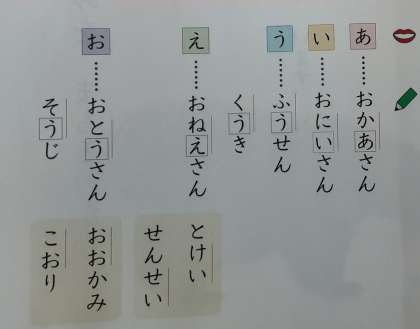 あ……おかあさん
い……おにいさん
う……ふうせん
くうき
え……おねえさん
とけい
せんせい
お……おとうさん
そうじ
おおかみ
こおり